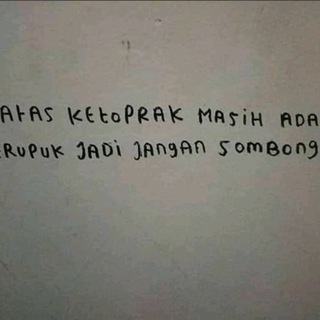 ATAS KETOPRAK MASIH ADA
ERUPUK JADI JANGAN SOMBONG